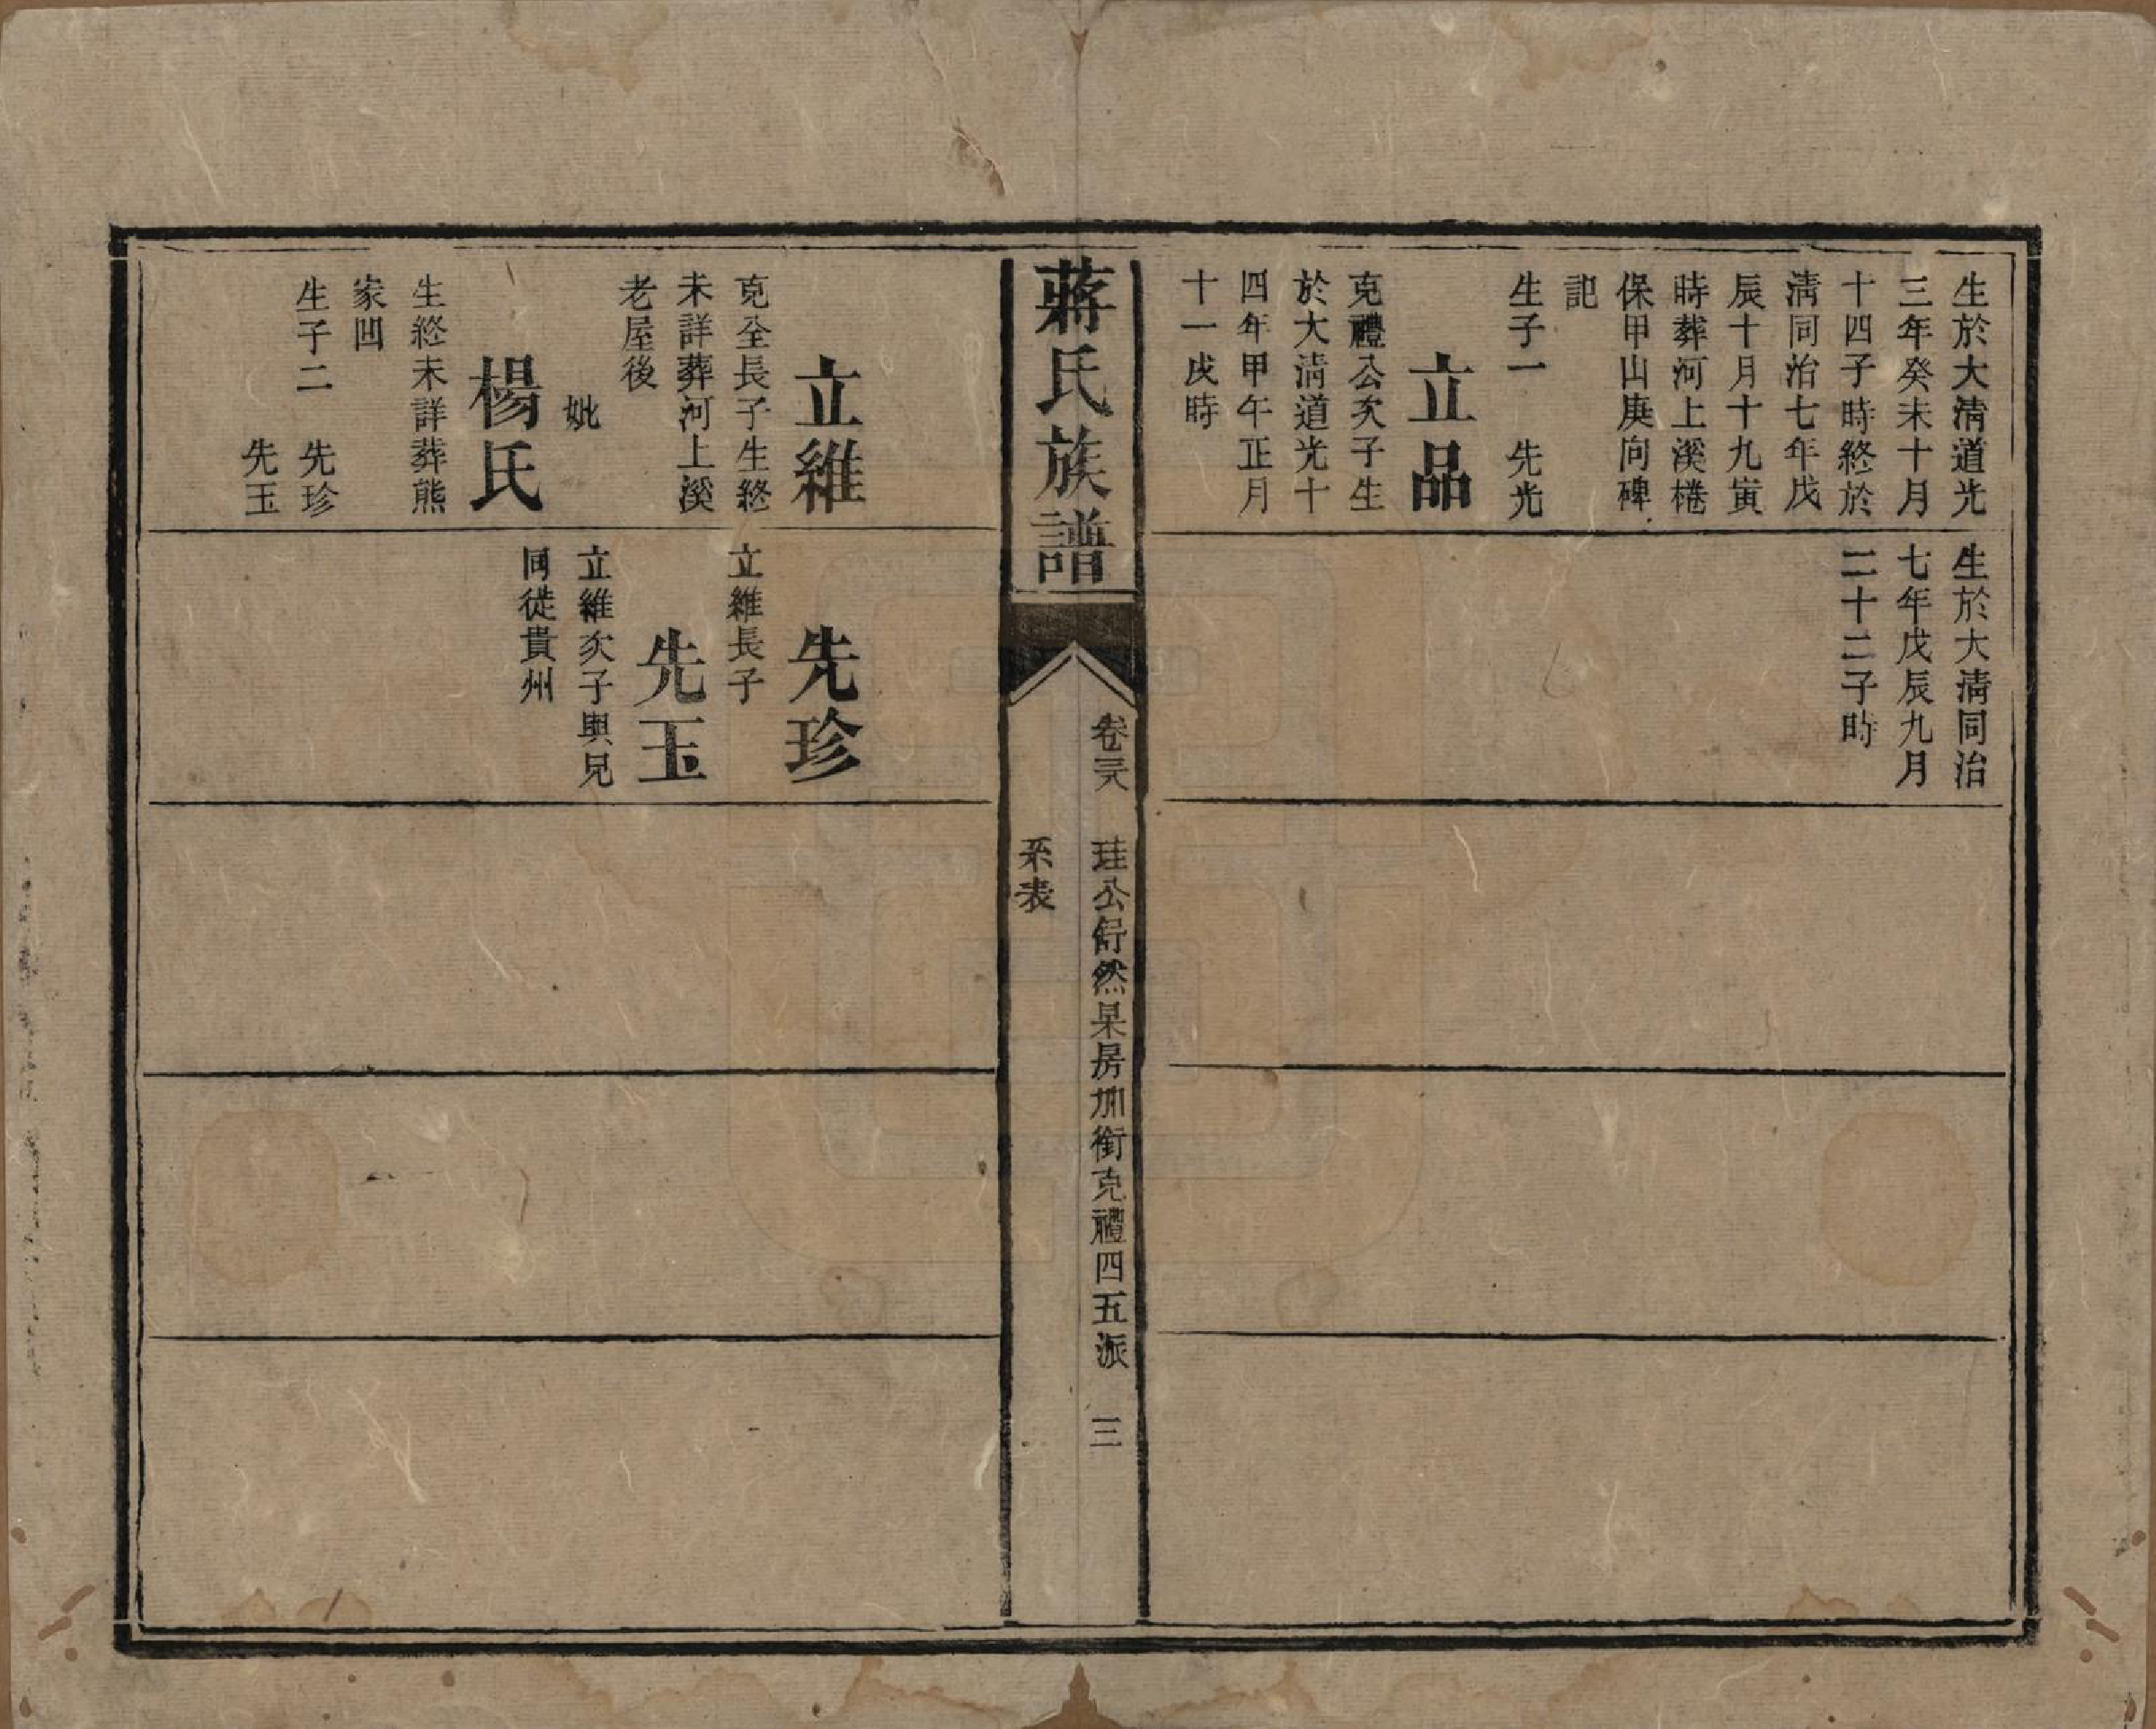 生於大清道光
三年癸未十月
十四子時終於
清同治七年戊
辰十月十九寅
時葬河上溪棬
保甲山庚向碑
記
生子一　先光
立品
克禮公次子生
於大清道光十
四年甲午正月
十一戌時
生於大清同治
七年戊辰九月
二十二子時
蔣氏族譜
卷三八　珪公舒然杲房加銜克禮四五派　三
系表
立維
克全長子生終
未詳葬河上溪
老屋後
妣
楊氏
生終未詳葬熊
家凹
生子二　先珍
先玉
先珍
立維長子
先玉
立維次子與兄
同徙貴州